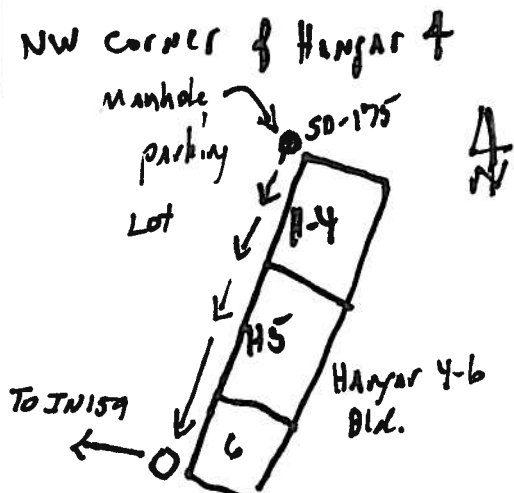 NW Corner of Hangar 4
Manhole
SD-175
parking
Lot
N
H-4
H5
Hangar 4-6
Bld.
6
To IN159